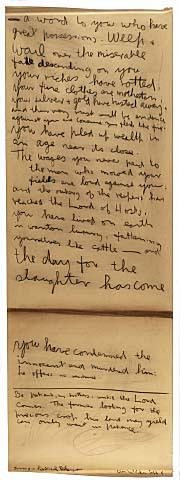 — a word to you who have
great possessions. Weep &
wail over the miserable
fate descending on you
your riches have rotted,
your fine clothes are motheaten
your silver & gold have rusted away,
and their very rust will be evidence
against you and consume your flesh like fire
you have piled up wealth in
an age near its close.
The wages you never paid to
the men who mowed your
fields are loud against you,
and the outcry of the reapers has
reached the Lord of Hosts;
you have lived on earth
in wanton luxury, fattening
yourselves like cattle — and
the day for the
slaughter has come
you have condemned the
innocent and murdered him;
he offers no resistance
Be patient, my brothers, until the Lord
comes. The farmer looking for the
precious crop his land may yield
can only wait in patience.